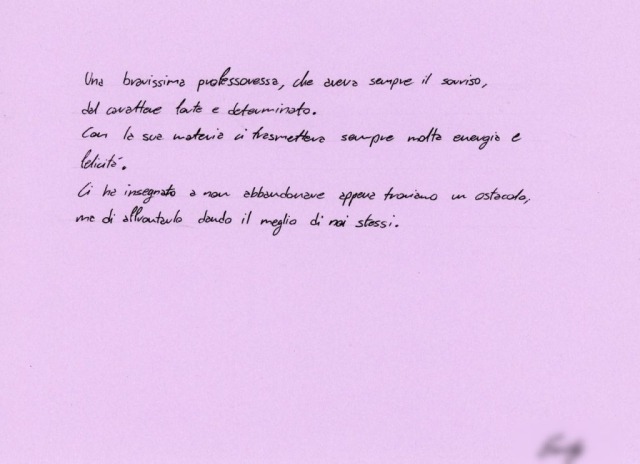 Una bravissima professoressa, che aveva sempre il sorriso,
dal carattere forte e determinato.
Con la sua materia ci trasmetteva sempre molta energia e
felicità.
Ci ha insegnato a non abbandonare appena troviamo un ostacolo,
ma di affrontarlo dando il meglio di noi stessi.